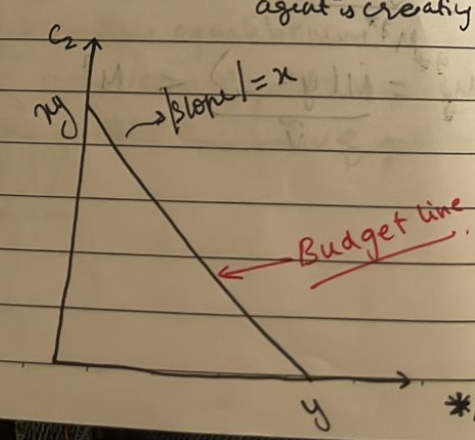 agent is creatin
C₂
|slope| = x
xy
Budget line
y
*